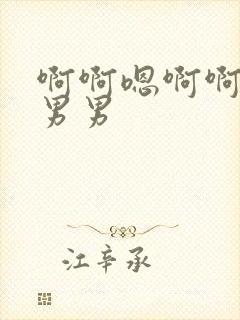 啊啊嗯啊啊
男男
江辛承